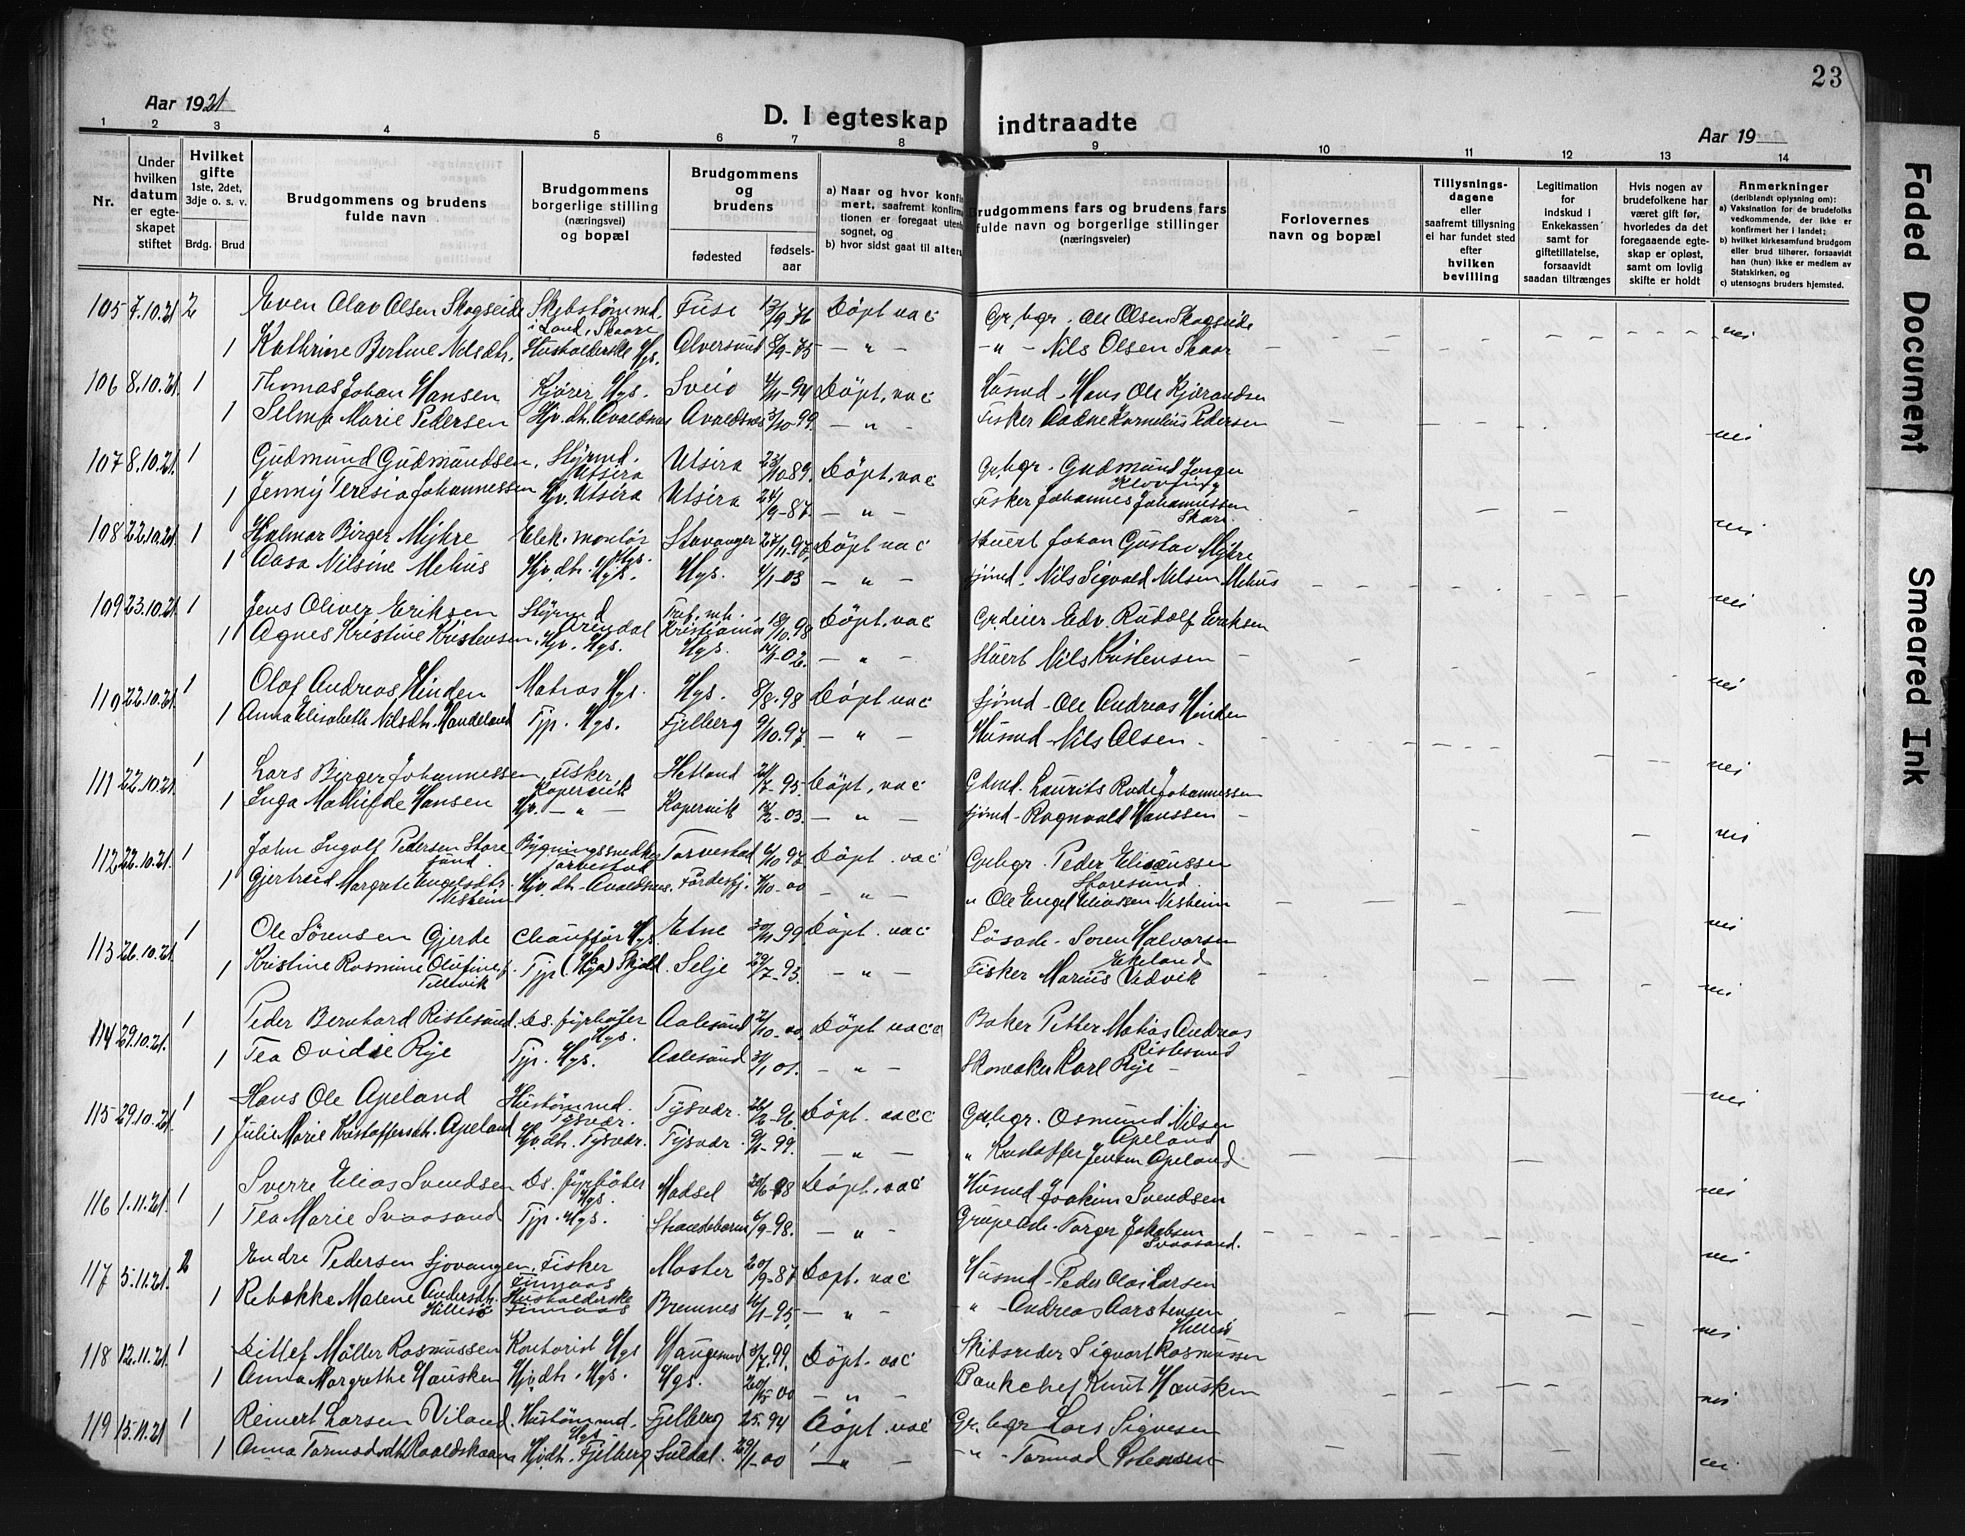 23
Aar 1921
D. I egteskap indtraadte
Aar 19
1 2 3 4 5 6 7 8 9 10 11 12 13 14
Nr.
Under hvilken datum er egteskapet stiftet
Hvilket gifte 1ste, 2det, 3dje o. s. v.
Brdg. Brud
Brudgommens og brudens fulde navn
Brudgommens borgerlige stilling (næringsvei) og bopæl
Brudgommens og brudens
fødested fødselsaar
a) Naar og hvor konfirmert, saafremt konfirmationen er foregaat utenfor sognet, og
b) hvor sidst gaat til alters
Brudgommens fars og brudens fars fulde navn og borgerlige stillinger (næringsveier)
Forlovernes navn og bopæl
Tillysningsdagene eller saafremt tillysning ei har fundet sted efter hvilken bevilling
Legitimation for indskud i Enkekassen samt for giftetillatelse, forsaavidt saadan tiltrænges
Hvis nogen av brudefolkene har været gift før, hvorledes da det foregaaende egteskap er opløst, samt om lovlig skifte er holdt
Anmerkninger (deriblandt oplysning om):
a) Vaksination for de brudefolks vedkommende, der ikke er konfirmert her i landet;
b) hvilket kirkesamfund brudgom eller brud tilhører, forsaavidt han (hun) ikke er medlem av Statskirken, og
c) utensogns bruders hjemsted.
105 7.10.21 2 Even Olav Olsen Skogseide Skibstømmd. i Land, Skaare Fuse 13/9 76 Døpt vac Gr.bgr. Ole Olsen Skogseide
1 Kathrine Bertine Nilsdtr. Husholderske Hgs. Alversund 8/9-75 — " — — " — Nils Olsen Skaar nei
106 8.10.21 1 Thomas Johan Hansen Kjører Hgs. Sveio 4/11-94 Døpt, vac Husmd. Hans Ole Kjærandsen
1 Selma Marie Pedersen Hjv. dtr. Avaldsnes Avaldsnes 31/10-99. — " — Fisker Aadne Kornelius Pedersen nei
107 8.10.21 1 Gudmund Gudmundsen Styrmd. Utsira Utsira 23/10 89. Døpt, vac Gr.bgr. Gudmund Jorgen Klovning
1 Jenny Teresia Johannessen Hjv. Utsira Utsira 24/9-87 — " — Fisker Johannes Johannessen Skare nei
108 22.10.21 1 Hjalmar Birger Myhre Elek. montør Hgs. Stavanger 27/11.97 Døpt vac Stuert Johan Gustav Myhre
1 Aasa Nilsine Mehus Hjv. dtr. Hgs. Hgs. 4/1-03 — " — Sjømd. Nils Sigvald Nilsen Mehus nei
109 23.10.21 1 Jens Oliver Eriksen Styrmd Arendal Kristiania 18/10.98 Døpt, vac Gr.deier Edv. Rudolf Eriksen
1 Agnes Kristine Kristensen Hjv. Hgs. Hgs. — " — Stuert Nils Kristensen nei
110 22.10.21 1 Olaf Andreas Hinden Matros Hgs. Hgs. 8/8-98 Døpt vac Sjømd. Ole Andreas Hinden
1 Anna Elisabeth Nilsdtr. Handeland Tjp. Hgs. Fjelberg 9/10.97 — " — Husmd. Nils Olsen nei
111 22.10.21 1 Lars Birger Johannessen Fisker Kopervik Hetland 21/7-95 Døpt, vac Gdmd. Laurits Rode Johannessen
1 Inga Mathilde Hansen Hjv. — " — Kopervik 14/2-03. — " — Sjømd. Ragnvald Hanssen nei
112 22.10.21 1 John Ingolf Pedersen Storesund Bygningssnedker Torvestad Torvestad 4/10 97. Døpt. vac Gr.bgr. Peder Eliasussen Storesund
1 Gjertrud Margrete Engelsdtr. Visheim Hjv. dtr. Avaldsnes Førdesfj. 4/10-00 — " — " Ole Engel Eliassen Visheim nei
113 26.10.21 1 Ole Sørensen Gjerde Chauffør Hgs. Etne 30/11 99. Døpt. vac Løsarb. Soren Halvorsen Ekeland
1 Kristine Rosmine Olufine Tp (Hgs) Skjold Selje 29/7-93. — " — Fisker Marius Vedvik nei
114 29.10.21 1 Peder Bernhard Ristesund Ds. fyrbøter Hgs. Aalesund 21/10-00 Døpt vac Baker Petter Matias Andreas Ristesund
1 Tea Ovidie Rye Tjp. Hgs. Aalesund 31/1 01. — " — Skomaker Karl Rye nei
115 29.10.21 1 Hans Ole Apeland Hustømmd. Tysvær. Tysvær. 26/2-96. Døpt. vac Gr.bgr. Osmund Nilsen Apeland
1 Julie Marie Kristoffersdtr. Apeland Hjv. dtr. Tysvær. Tysvær. 9/2-99. — " — " Kristoffer Jensen Apeland. nei
116 1.11.21. 1 Sverre Elias Svendsen Ds. fyrbøter Hgs. Hadsel 20/6-98 Døpt, vac Husmd Joakim Svendsen
1 Tea Marie Svaasand Tjp. Hgs. Strandebarm 6/9-98. — " — Grubearb. Torger Jakobsen Svaasand. nei
117 5.11.21. 2 Endre Pedersen Sjovangen Fisker Finnaas Moster 20/9-87 Døpt, vac Husmd. Peder Olai Larsen
1 Rebekka Malene Andersdtr. Hillesø Husholderske Finnaas Bremnes 16/1-95. — " — — " — Andreas Aarstensen Hillesø nei
118 12.11.21. 1 Ditlef Møller Rasmussen Kontorist Hgs Haugesund 3/7.99. Døpt. vac Skibsreder Sigvart Rasmussen
1 Anna Margrethe Hausken Hjv. dtr. Hgs. Hgs. 20/5 00 — " — Bankchef Knut Hausken nei
119 15.11.21 1 Reinert Larsen Viland Hustømmd. Hgs Fjelberg 25. 94 Døpt vac Gr. bgr Lars Sigvesen
1 Anna Tormodsdtr Roaldskaar Hjv. dtr. Fjelberg Suldal. 29/1-00 — " — — " — Tormod nei
Faded Document
Smeared Ink